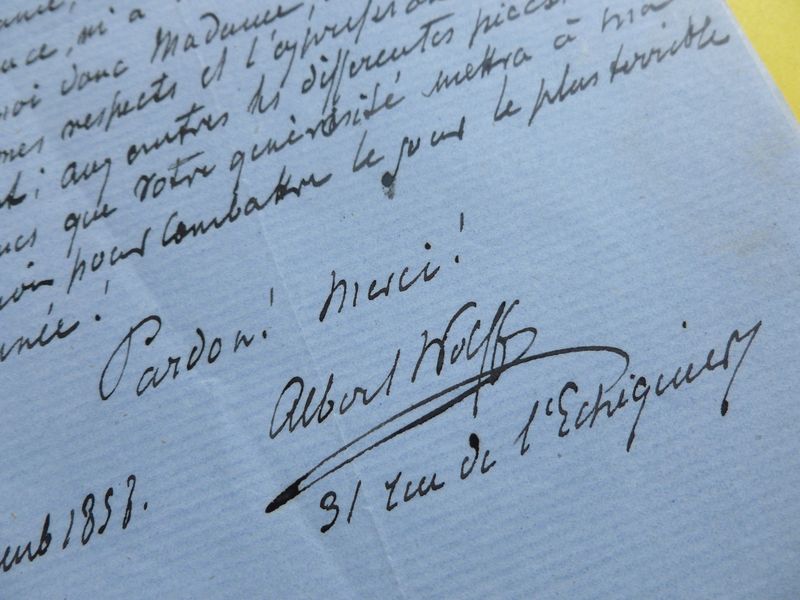 moi donc Madame,
mes respects et l'expression
aux autres les différentes pièces
que votre générosité mettra à ma
pour combattre le jour le plus terrible
Pardon! Merci!
Albert Wolff
31 rue de l'Echiquier